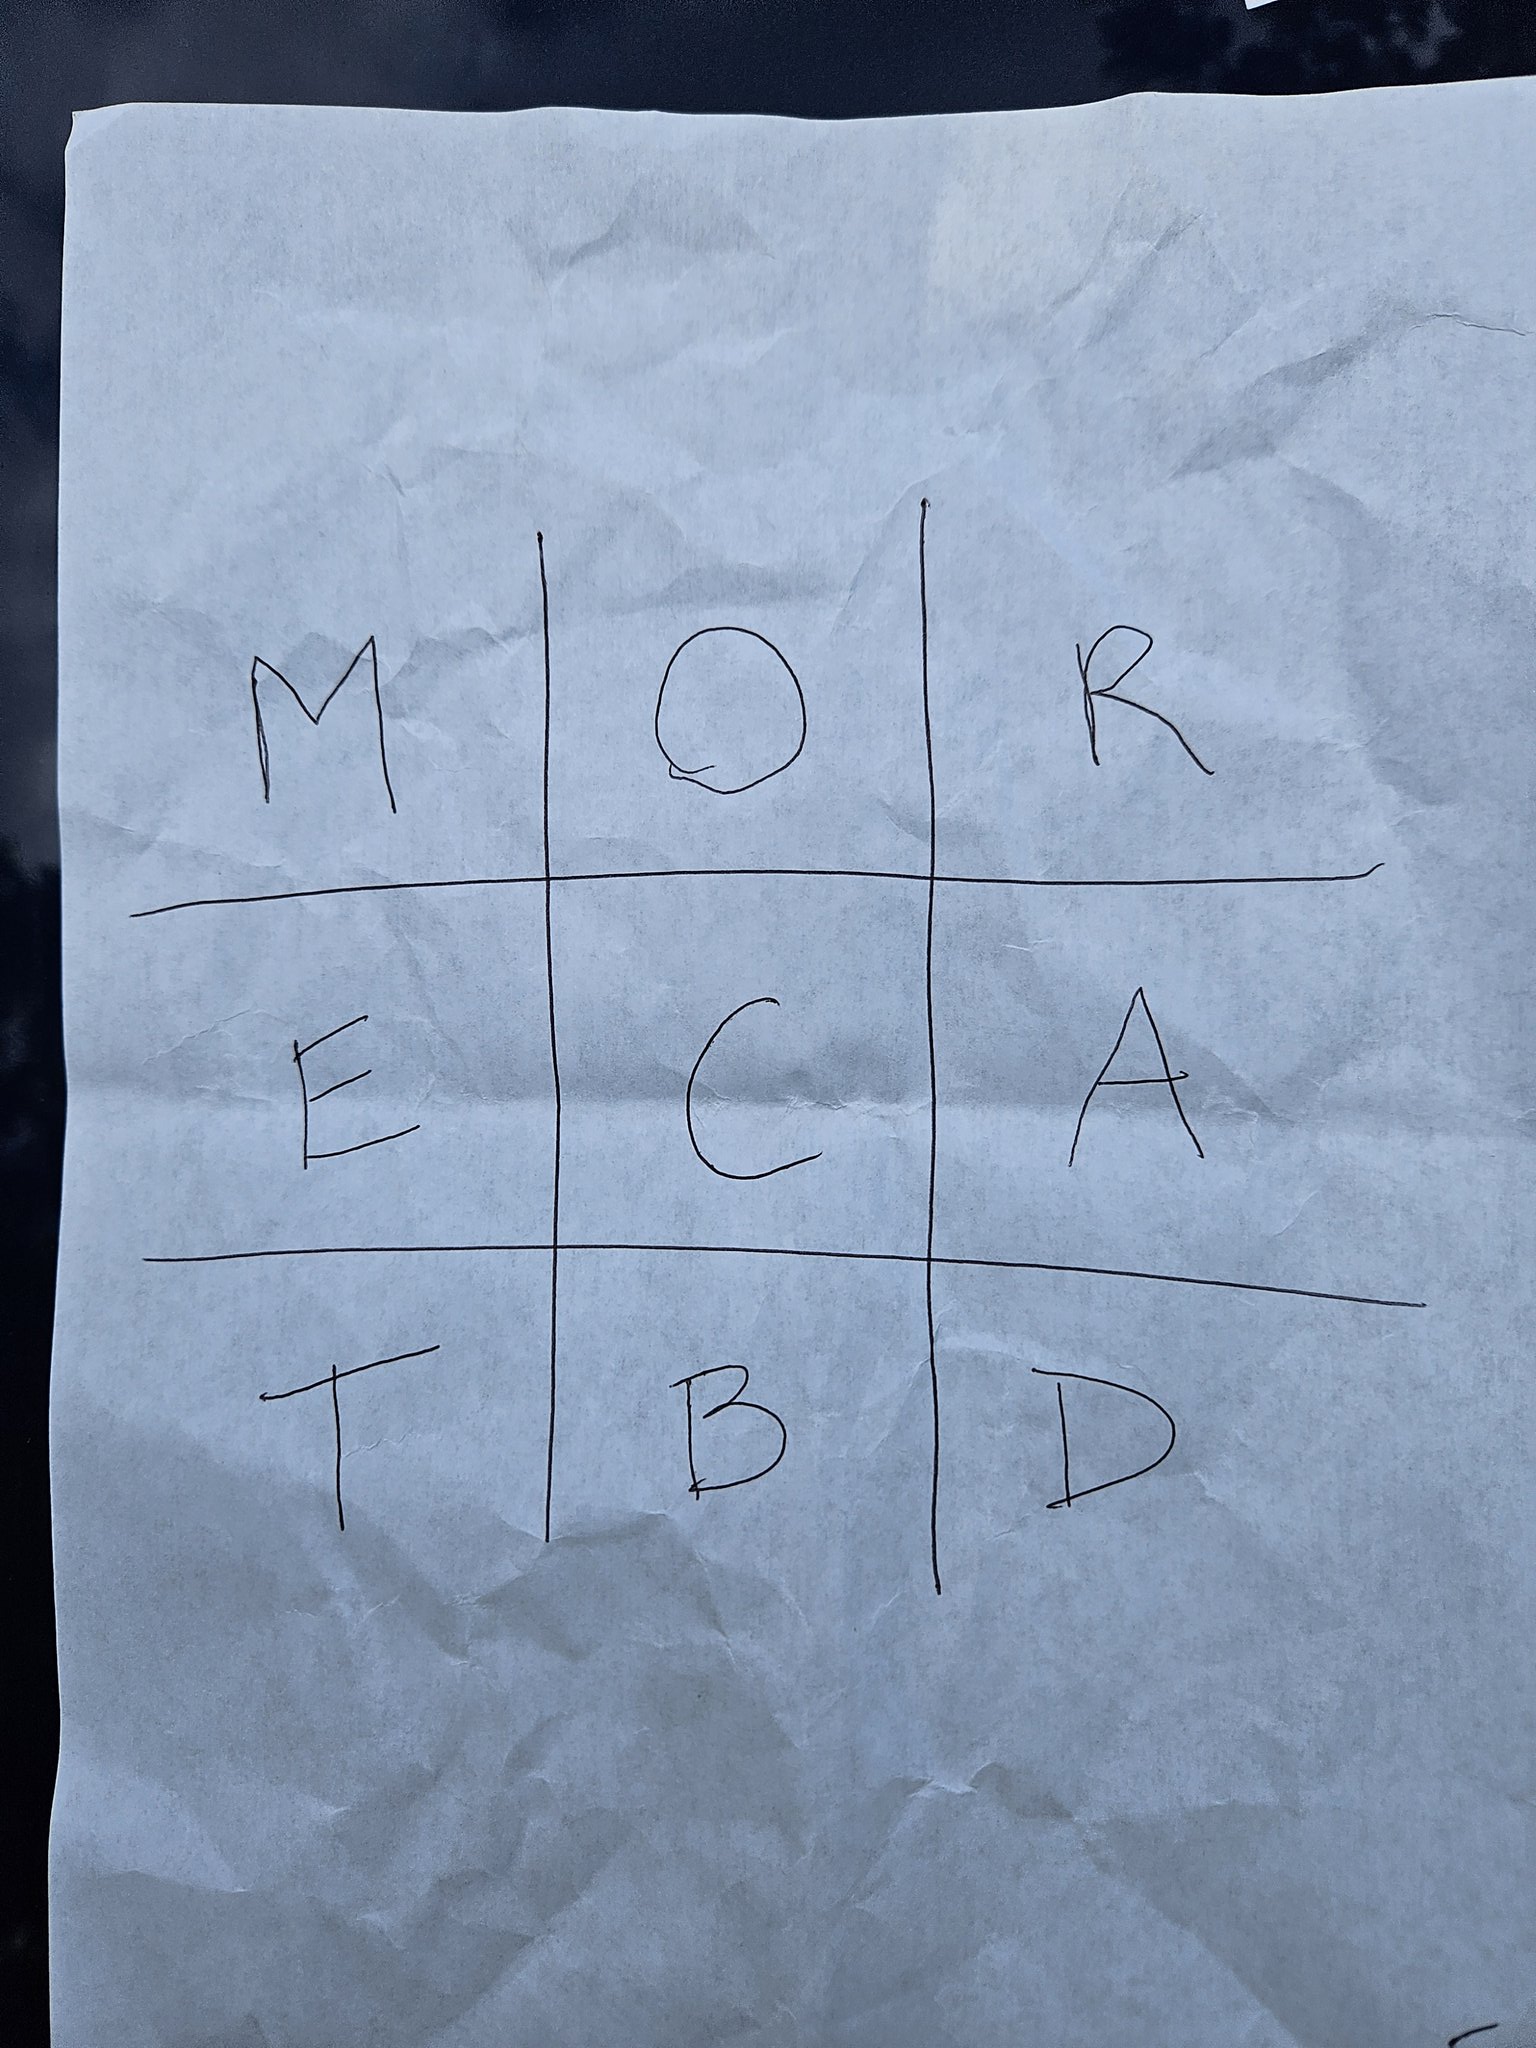 M O R
E C A
T B D